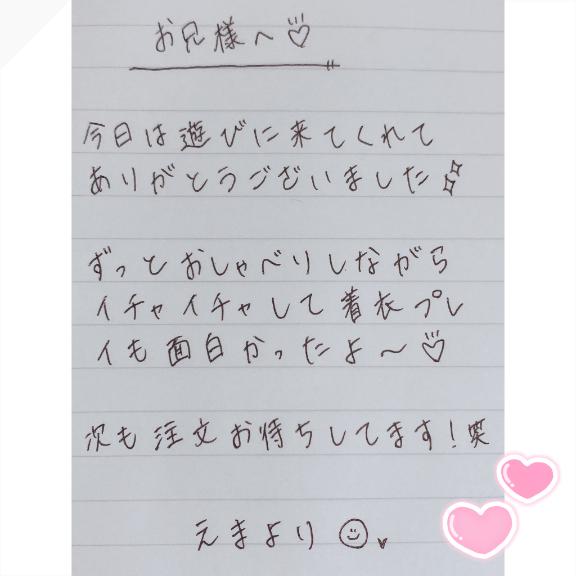 お兄様へ♡
今日は遊びに来てくれて
ありがとうございました✨
ずっとおしゃべりしながら
イチャイチャして着衣プレ
イも面白かったよ〜♡
次も注文お待ちしてます!笑
えまより☺♥